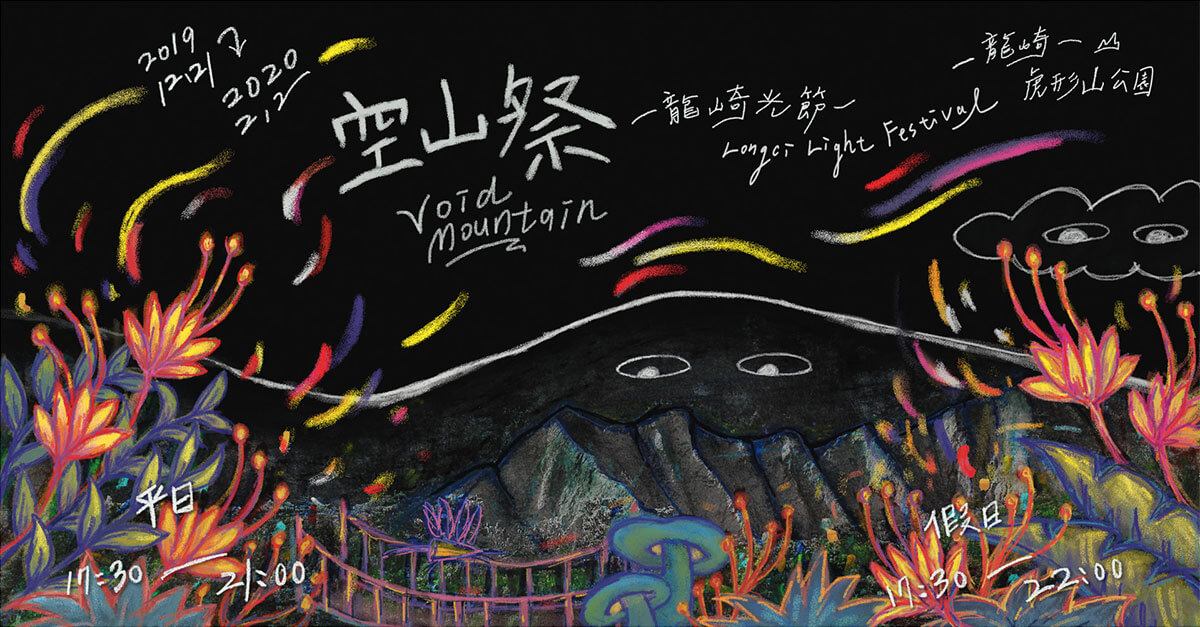 2019
12.21
2020
2.2
空山祭
Void
Mountain
一龍崎光節一
Longci Light Festival
一龍崎一
虎形山公園
平日
17:30 — 21:00
假日
17:30 — 22:00